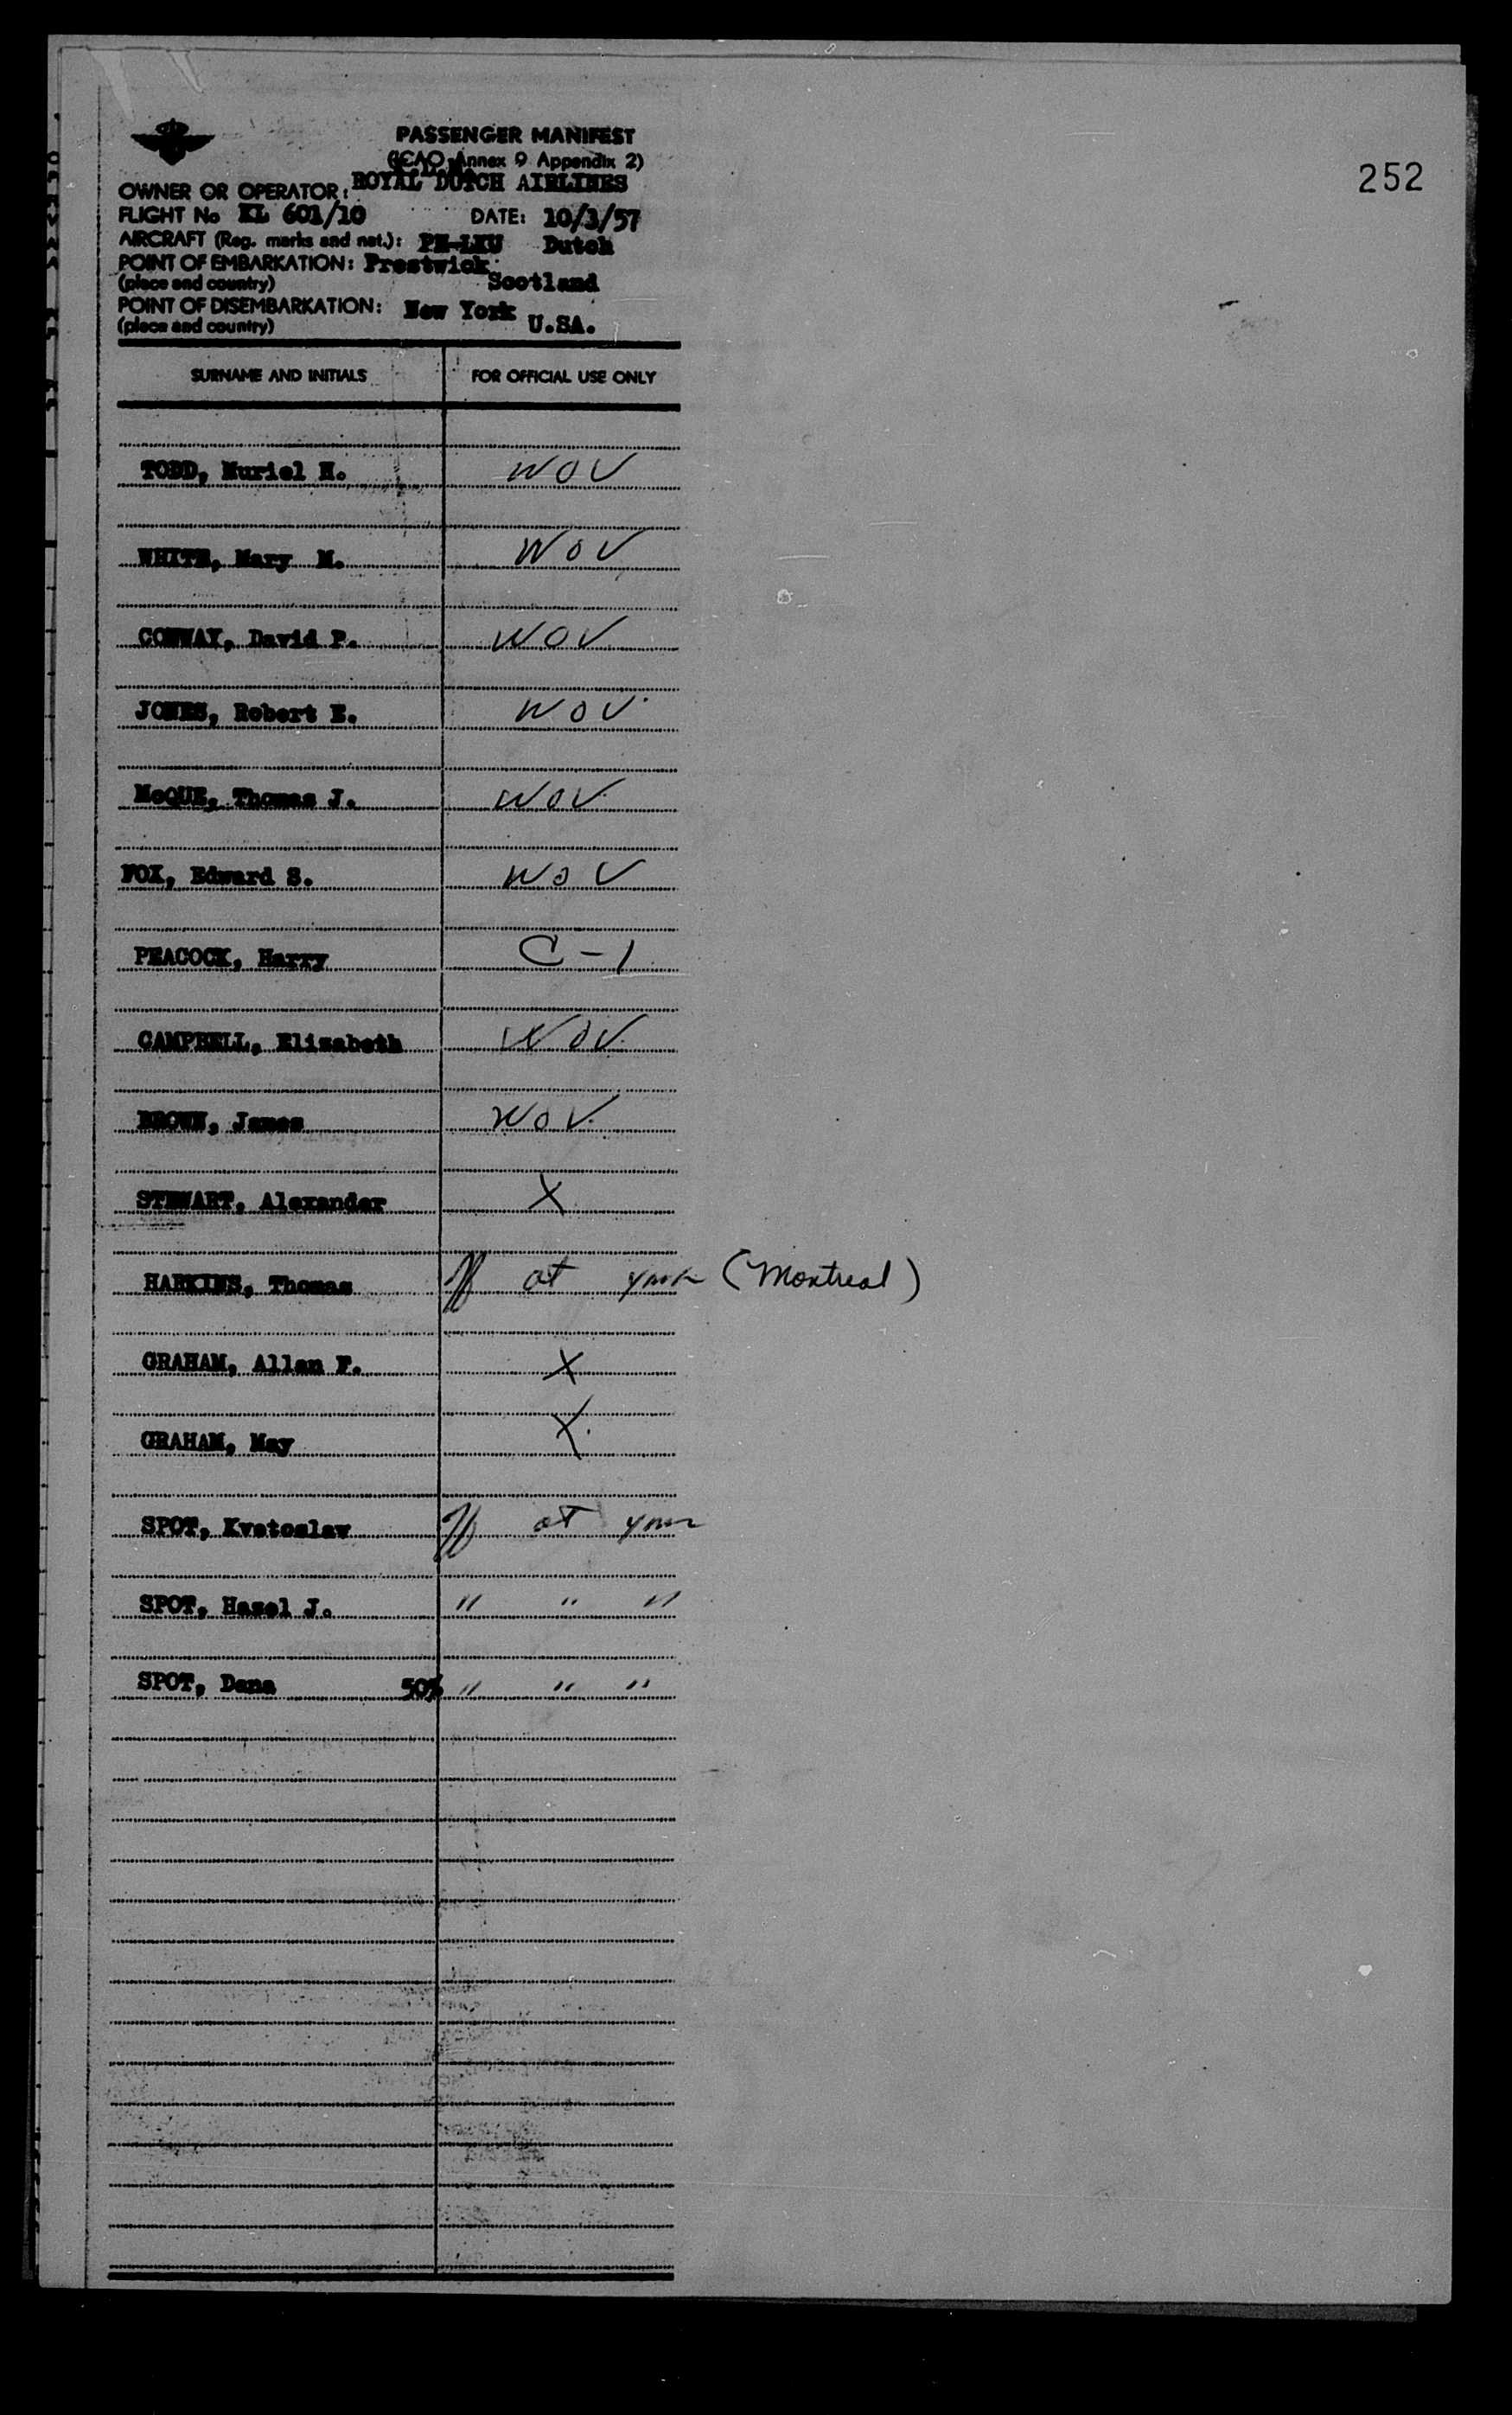 252
PASSENGER MANIFEST
(ICAO Annex 9 Appendix 2)
OWNER OR OPERATOR: ROYAL DUTCH AIRLINES
FLIGHT No KL 601/10 DATE: 10/3/57
AIRCRAFT (Reg. marks and nat.): PH-LKU Dutch
POINT OF EMBARKATION: Prestwick
(place and country) Scotland
POINT OF DISEMBARKATION: New York
(place and country) U.SA.
SURNAME AND INITIALS FOR OFFICIAL USE ONLY
TODD, Muriel H. WOV
WHITE, Mary M. WOV
CONWAY, David P. WOV
JONES, Robert E. WOV
McQUE, Thomas J. WOV
FOX, Edward S. WOV
PEACOCK, Harry C-1
CAMPBELL, Elizabeth WOV
BROWN, James WOV
STEWART, Alexander X
HARKINS, Thomas at (Montreal)
GRAHAM, Allan F. X
GRAHAM, May X
SPOT, Kvetoslav at
SPOT, Hazel J. " " "
SPOT, Dana 50% " " "